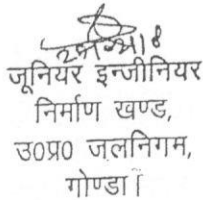 जूनियर इन्जीनियर
निर्माण खण्ड,
उ०प्र० जलनिगम,
गोण्डा।